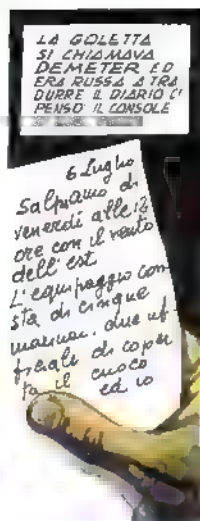 LA GOLETTA
SI CHIAMAVA
DEMETER ED
ERA RUSSA A TRA
DURRE IL DIARIO CI
PENSÒ IL CONSOLE
6 Luglio
Salpiamo di
venerdì alle 12
ore con il vento
dell'est
L'equipaggio con
sta di cinque
marinai, due uf
ficiali di coper
ta il cuoco
ed io